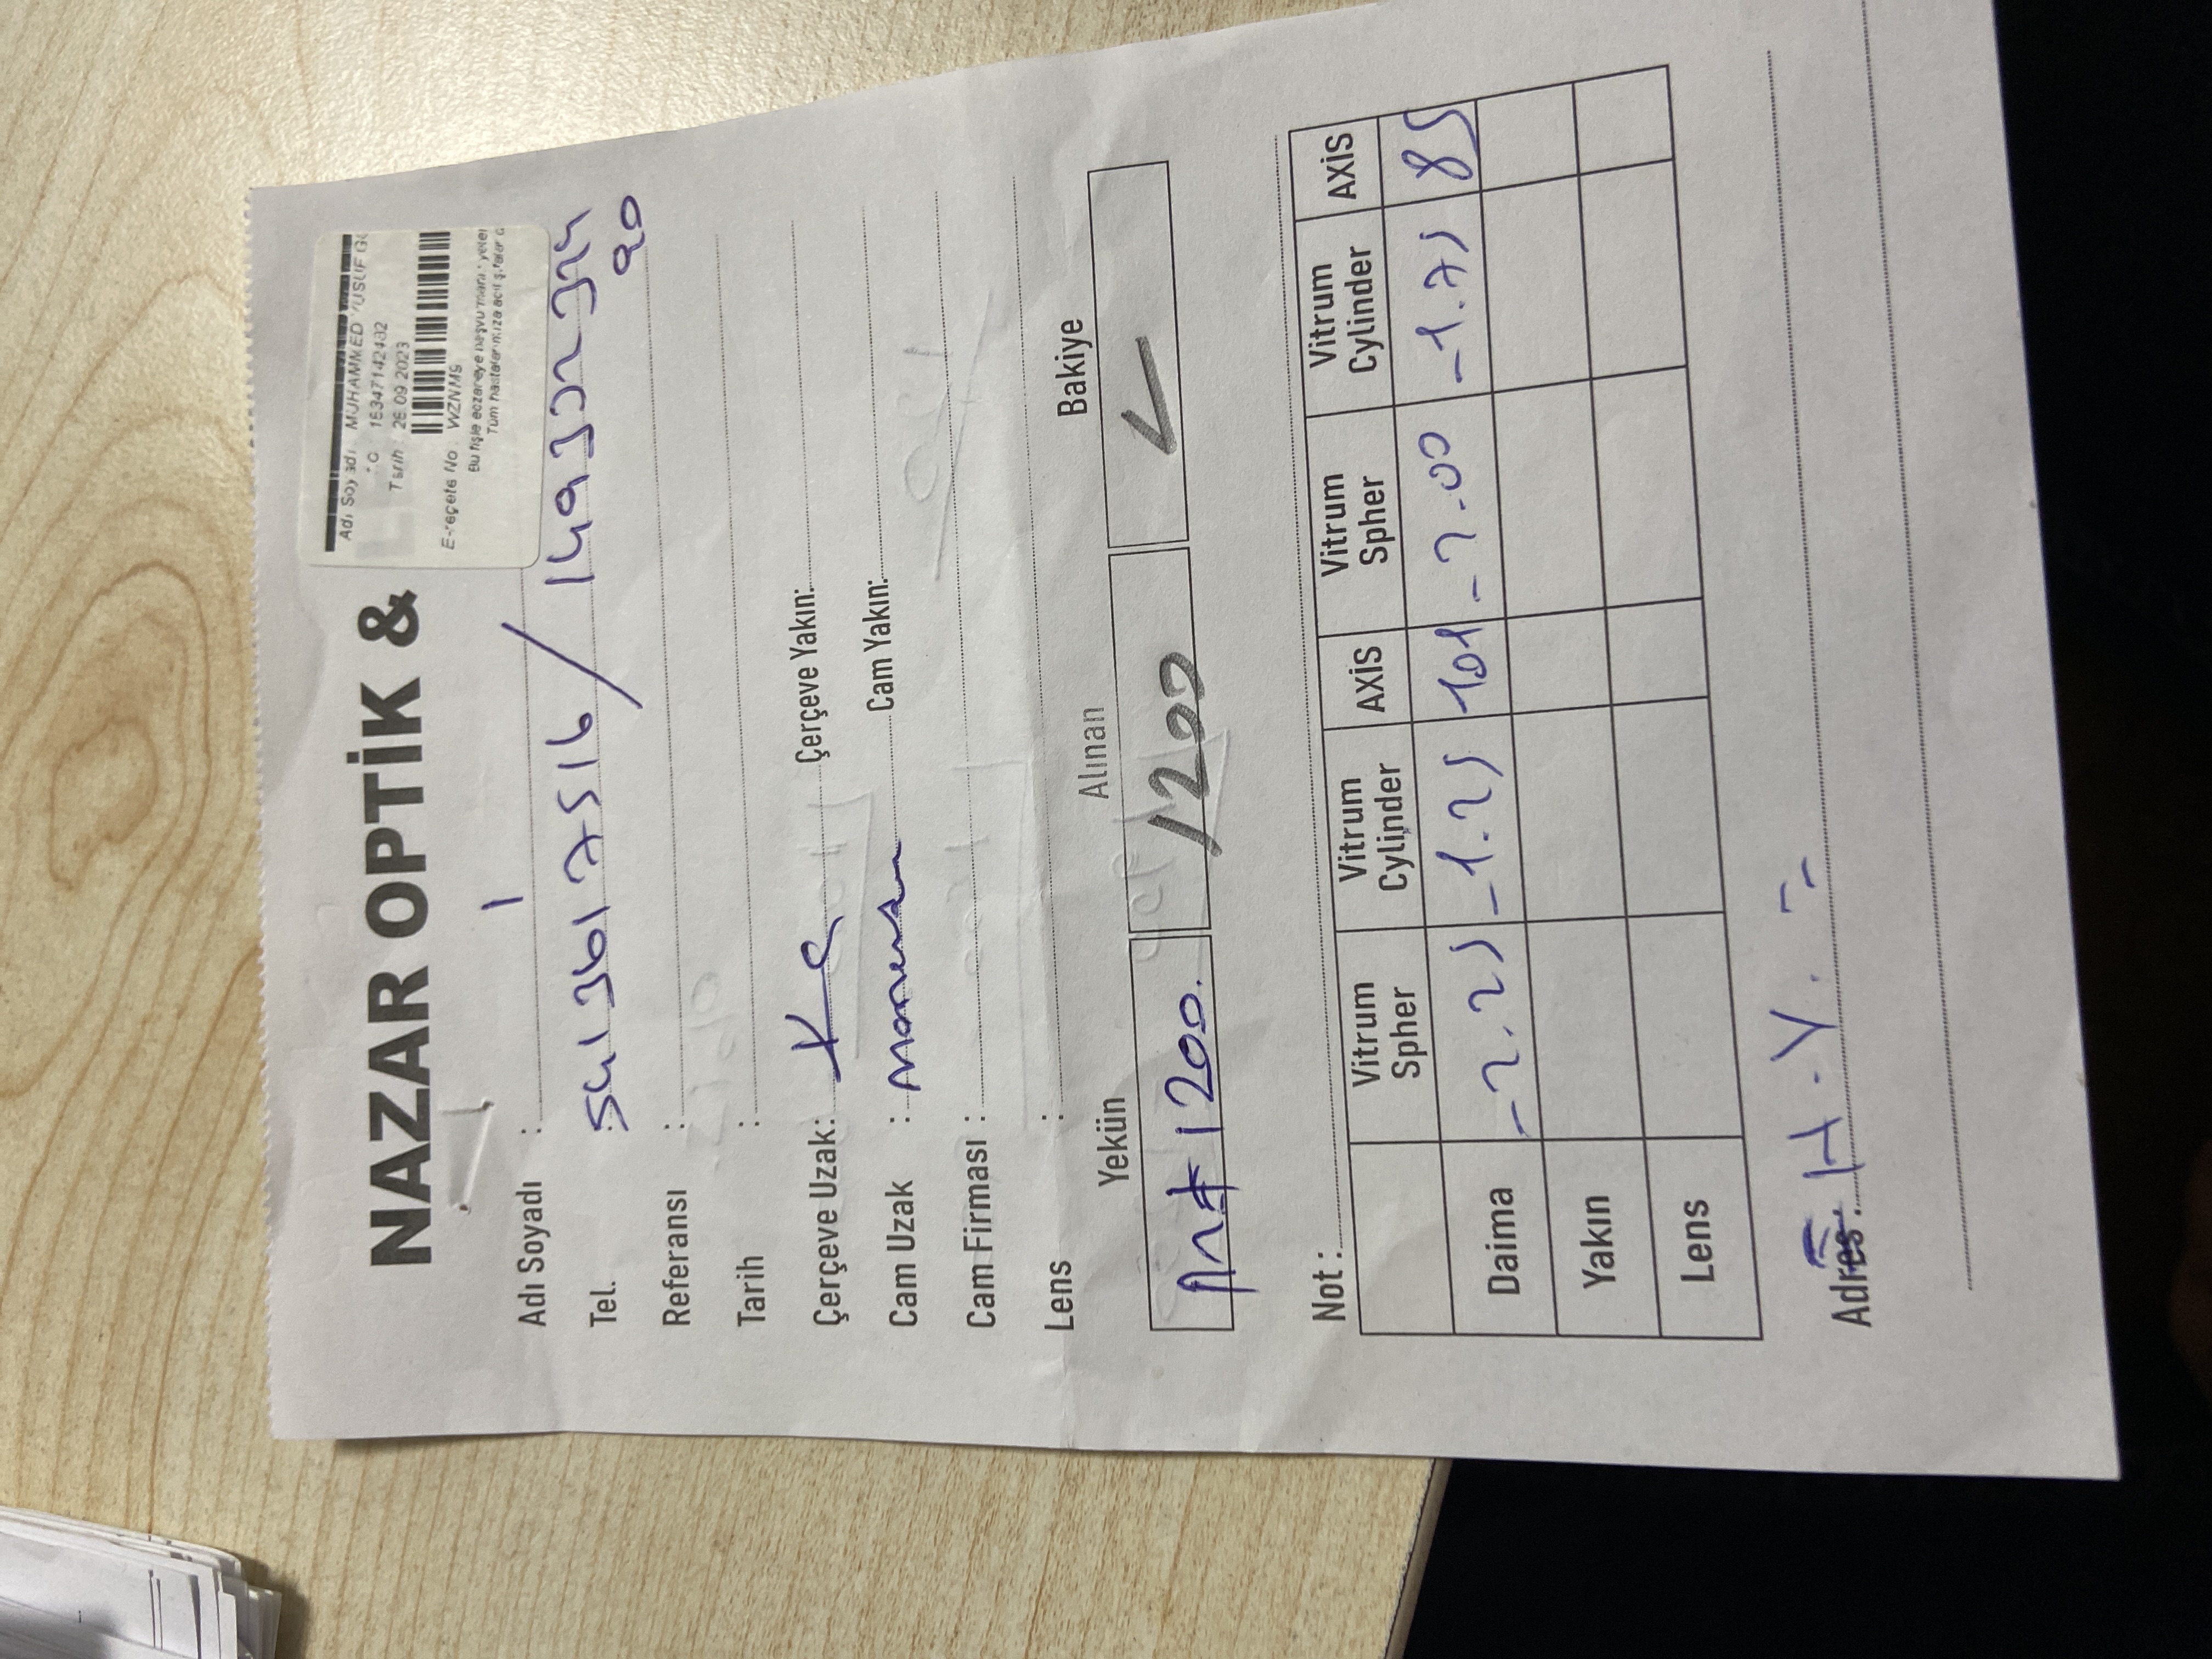 NAZAR OPTİK &
Adı Soyadı MUHAMMED YUSUF
15347142482
Tarih 26.09.2023
E-reçete No WZNM9
Bu fişle eczaneye başvurmanız yeter
Tüm hastalarımıza acil şifalar
Adı Soyadı :
Tel. 5413617516 / 149332324
90
Referansı :
Tarih :
Çerçeve Uzak: Çerçeve Yakın:
Cam Uzak : Cam Yakın:
Cam Firması :
Lens :
Yekün Alınan Bakiye
1200. 1200
Not :
Vitrum Spher Vitrum Cylinder AXİS Vitrum Spher Vitrum Cylinder AXİS
Daima -2.25 -1.25 101 -2.00 -1.75 85
Yakın
Lens
Adres: H.Y. =